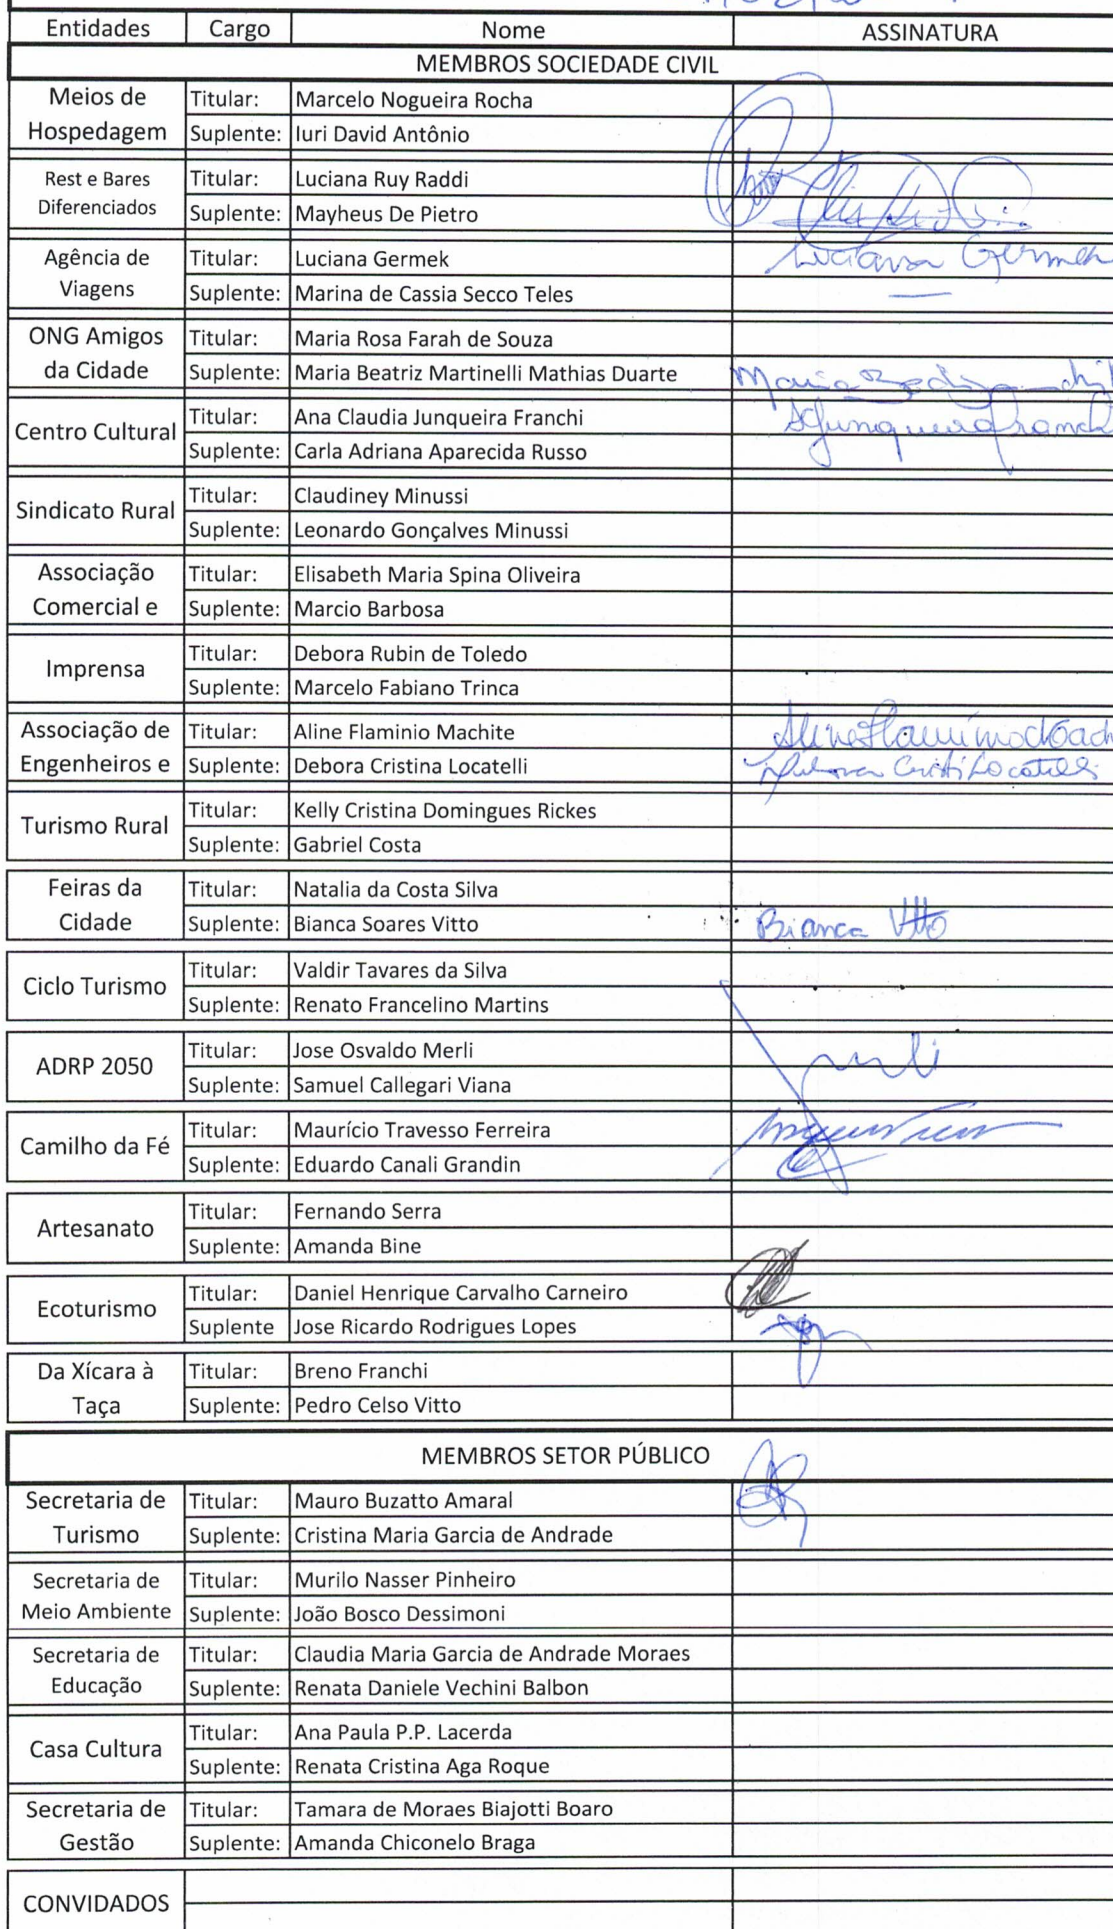 Entidades Cargo Nome ASSINATURA
MEMBROS SOCIEDADE CIVIL
Meios de Hospedagem
Titular: Marcelo Nogueira Rocha
Suplente: Iuri David Antônio
Rest e Bares Diferenciados
Titular: Luciana Ruy Raddi
Suplente: Mayheus De Pietro
Agência de Viagens
Titular: Luciana Germek Luciana Germek
Suplente: Marina de Cassia Secco Teles
ONG Amigos da Cidade
Titular: Maria Rosa Farah de Souza
Suplente: Maria Beatriz Martinelli Mathias Duarte Maria
Centro Cultural
Titular: Ana Claudia Junqueira Franchi
Suplente: Carla Adriana Aparecida Russo
Sindicato Rural
Titular: Claudiney Minussi
Suplente: Leonardo Gonçalves Minussi
Associação Comercial e
Titular: Elisabeth Maria Spina Oliveira
Suplente: Marcio Barbosa
Imprensa
Titular: Debora Rubin de Toledo
Suplente: Marcelo Fabiano Trinca
Associação de Engenheiros e
Titular: Aline Flaminio Machite
Suplente: Debora Cristina Locatelli
Turismo Rural
Titular: Kelly Cristina Domingues Rickes
Suplente: Gabriel Costa
Feiras da Cidade
Titular: Natalia da Costa Silva
Suplente: Bianca Soares Vitto Bianca Vitto
Ciclo Turismo
Titular: Valdir Tavares da Silva
Suplente: Renato Francelino Martins
ADRP 2050
Titular: Jose Osvaldo Merli
Suplente: Samuel Callegari Viana
Camilho da Fé
Titular: Maurício Travesso Ferreira
Suplente: Eduardo Canali Grandin
Artesanato
Titular: Fernando Serra
Suplente: Amanda Bine
Ecoturismo
Titular: Daniel Henrique Carvalho Carneiro
Suplente Jose Ricardo Rodrigues Lopes
Da Xícara à Taça
Titular: Breno Franchi
Suplente: Pedro Celso Vitto
MEMBROS SETOR PÚBLICO
Secretaria de Turismo
Titular: Mauro Buzatto Amaral
Suplente: Cristina Maria Garcia de Andrade
Secretaria de Meio Ambiente
Titular: Murilo Nasser Pinheiro
Suplente: João Bosco Dessimoni
Secretaria de Educação
Titular: Claudia Maria Garcia de Andrade Moraes
Suplente: Renata Daniele Vechini Balbon
Casa Cultura
Titular: Ana Paula P.P. Lacerda
Suplente: Renata Cristina Aga Roque
Secretaria de Gestão
Titular: Tamara de Moraes Biajotti Boaro
Suplente: Amanda Chiconelo Braga
CONVIDADOS